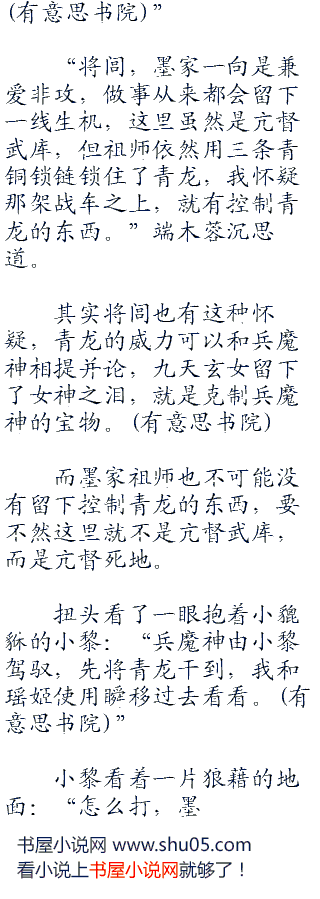 (有意思书院)”
“将闾，墨家一向是兼
爱非攻，做事从来都会留下
一线生机，这里虽然是亢督
武库，但祖师依然用三条青
铜锁链锁住了青龙，我怀疑
那架战车之上，就有控制青
龙的东西。”端木蓉沉思
道。
其实将闾也有这种怀
疑，青龙的威力可以和兵魔
神相提并论，九天玄女留下
了女神之泪，就是克制兵魔
神的宝物。(有意思书院)
而墨家祖师也不可能没
有留下控制青龙的东西，要
不然这里就不是亢督武库，
而是亢督死地。
扭头看了一眼抱着小貔
貅的小黎：“兵魔神由小黎
驾驭，先将青龙干到，我和
瑶姬使用瞬移过去看看。(有
意思书院)”
小黎看着一片狼藉的地
面：“怎么打，墨
书屋小说网 www.shu05.com
看小说上书屋小说网就够了！